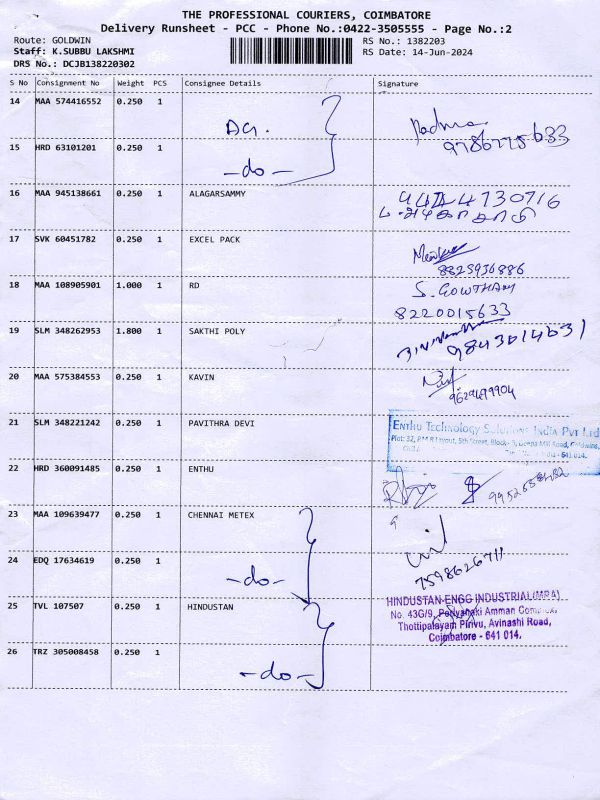 THE PROFESSIONAL COURIERS, COIMBATORE
Delivery Runsheet - PCC - Phone No.:0422-3505555 - Page No.:2
Route: GOLDWIN
RS No.: 1382203
Staff: K.SUBBU LAKSHMI
RS Date: 14-Jun-2024
DRS No.: DCJB138220302
S No Consignment No Weight PCS Consignee Details Signature
14 MAA 574416552 0.250 1
15 HRD 63101201 0.250 1 -do-
16 MAA 945138661 0.250 1 ALAGARSAMMY
17 SVK 60451782 0.250 1 EXCEL PACK
8825936886
18 MAA 108905901 1.000 1 RD S. GOWTHAM
8220015633
19 SLM 348262953 1.800 1 SAKTHI POLY
9843014631
20 MAA 575384553 0.250 1 KAVIN
9629499904
21 SLM 348221242 0.250 1 PAVITHRA DEVI
ENTHU TECHNOLOGY SOLUTIONS INDIA PVT Ltd
Plot: 32, P M R Layout, 5th Street, Block- Deepa Mill Road, Goldwins,
India - 641 014.
22 HRD 360091485 0.250 1 ENTHU
23 MAA 109639477 0.250 1 CHENNAI METEX
7598626711
24 EDQ 17634619 0.250 1 -do-
25 TVL 107507 0.250 1 HINDUSTAN
HINDUSTAN-ENGG INDUSTRIAL(MRA)
No. 43G/9, Periyanaki Amman Complex,
Thottipalayam Pirivu, Avinashi Road,
Coimbatore - 641 014.
26 TRZ 305008458 0.250 1 -do-